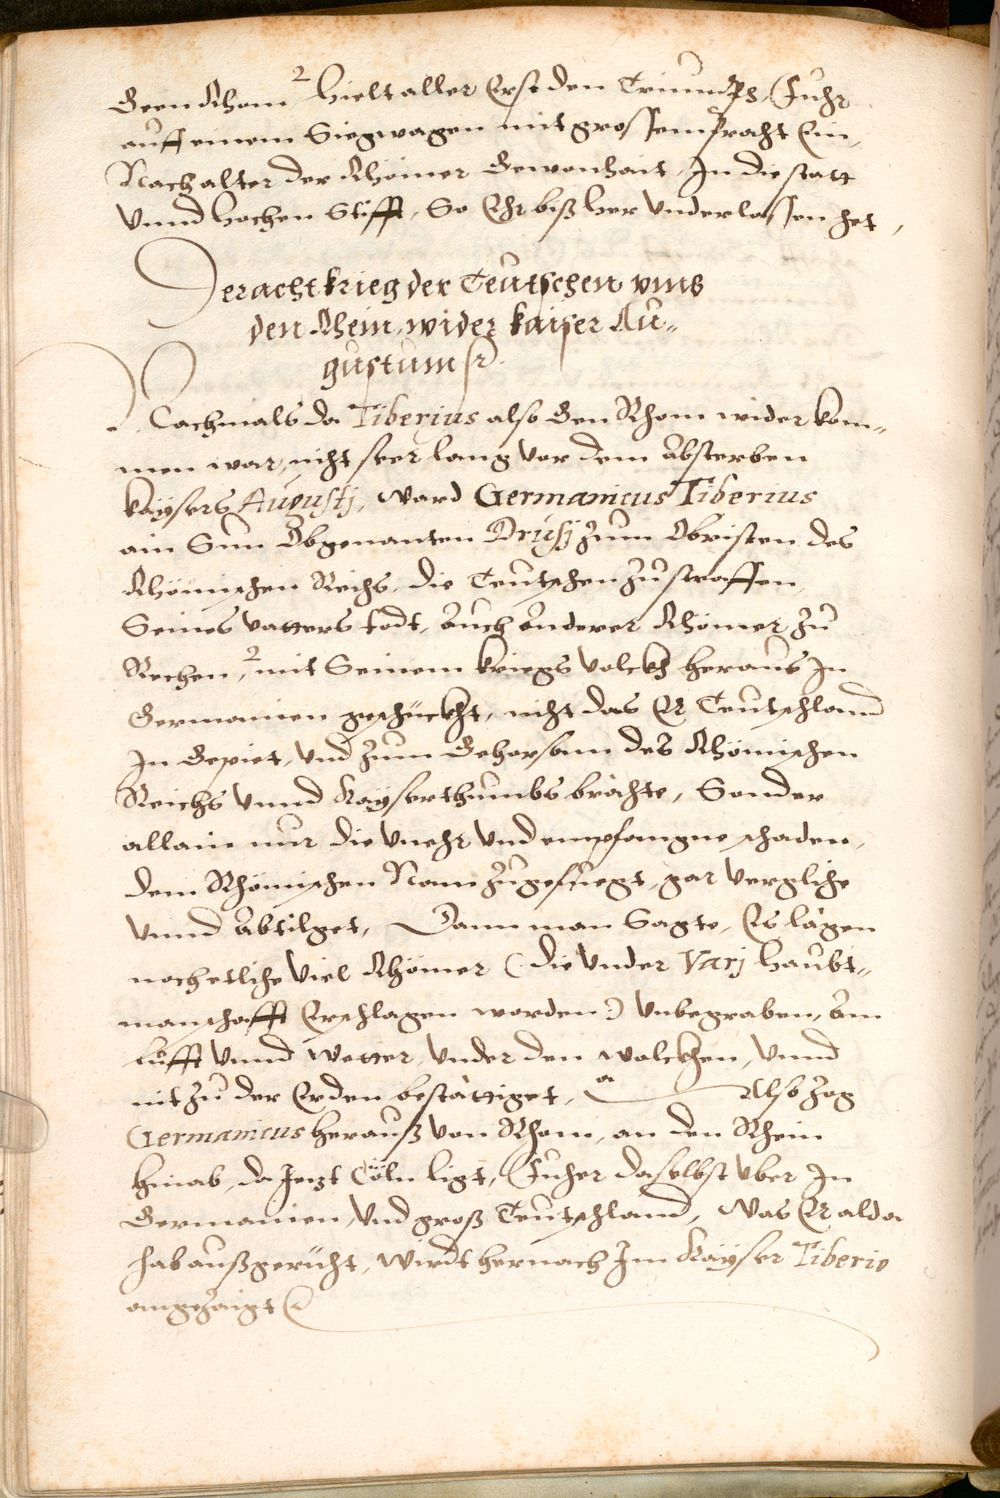 Geen Rhom, hielt aller Erst den Triumph, Fuhr
auff einem Siegwagen mit grossem pracht Ein,
Nach alter der Rhömer Gewonhait, In die statt
Vnnd hochen Stifft, So Ehr biß her Vnderlassen het,
Der acht krieg der Teutschen vmb
den Rhein, wider kaiser Au=
gustum
Nachmals da Tiberius also Gen Rhom wider kom=
men war, nicht seer lang vor dem Absterben
kaysers Augustj, ward Germanicus Tiberius
ain Sun Obgenanten Drusj zum Obristen des
Rhömischen Reichs, die Teutschen zu straffen,
Seines vatters todt, Auch Anderer Rhömer zu
Rechen, mit Seinem kriegs volckh heraus In
Germanien geschückht, nicht das Er Teutschland
In Gepiet, Vnd zum Gehorsam des Rhömischen
Reichs Vnnd Kayserthumbs brächte, Sonder
allain nur die Vnehr Vnd empfangne schaden,
dem Rhömischen Nam zugefuegt, gar Vergliche
Vnnd Abtilget, Dann man Sagte, Es lägen
noch etliche Viel Rhömer (die Vnder Varj haubt=
manschafft Erschlagen worden) Vnbegraben, Am
lufft Vnnd Wetter, Vnder den wolckhen, Vnnd
nit zu der Erden bestättiget, Also zog
Germanicus herauß Von Rhom, an den Rhein
hinab, da Jetzt Cöln ligt, Fuher daselbst Vber In
Germanien, Vnd groß Teutschland, Was Er alda
hab außgericht, Wirdt hernach Im Kayser Tiberio
angezaigt